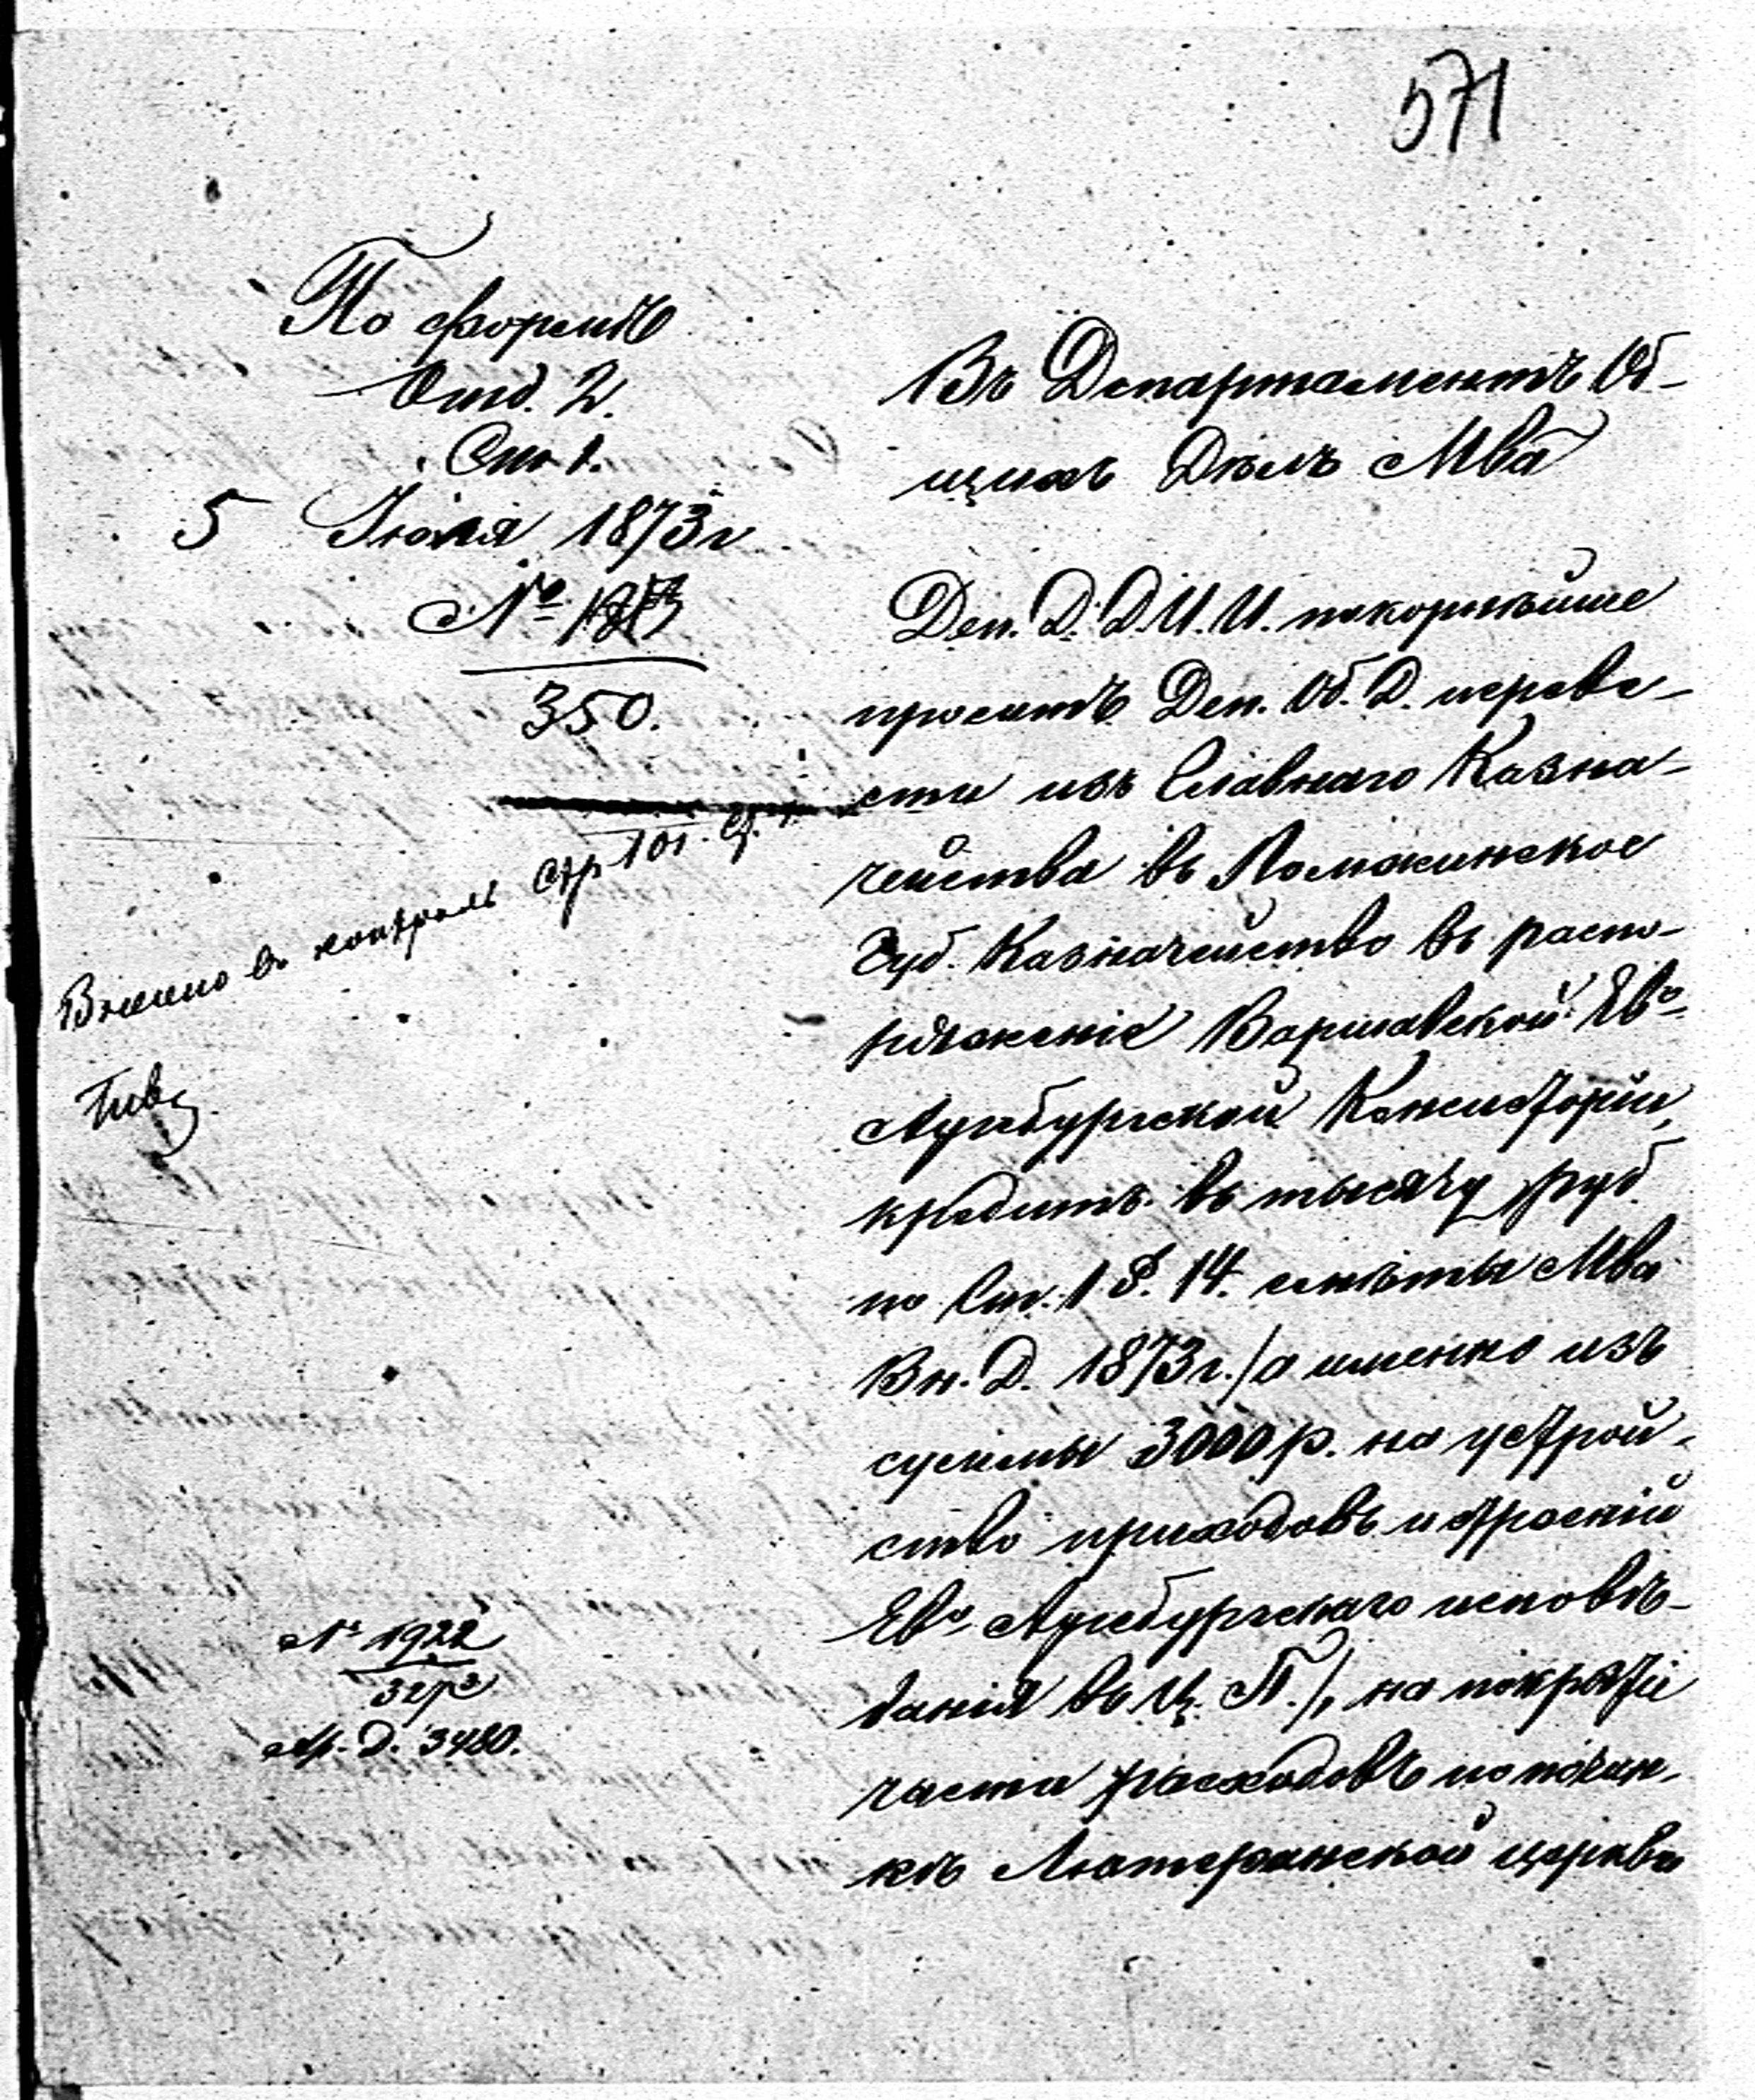 571
По формѣ
Отд. 2.
Ст. 1.
5 Іюля 1873 г
№
350.
Внесено въ контроль Стр 101. Ст.
Въ Департаментъ Об-
щихъ Дѣлъ Мва
Деп. Д. Д. И. И. покорнѣйше
проситъ Деп. Об. Д. переве-
сти изъ Главнаго Казна-
чейства въ Ломжинское
Губ. Казначейство въ распо-
ряженіе Варшавской Ево
Аугсбургской Консисторіи,
кредитъ въ тысячу руб
по Ст. 1 §. 14. смѣты Мва
Вн. Д. 1873 г. /а именно изъ
суммы 3000 р. на устрой-
ство приходовъ и строеній
Ево Аугсбургскаго исповѣ-
данія въ Ц. П./, на покрытіе
части расходовъ по почин-
кѣ Лютеранской церкви
№ 1922
Ар. д. 3480.